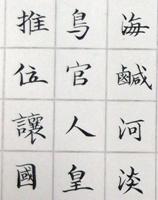 海鹹河淡
鳥官人皇
推位讓國